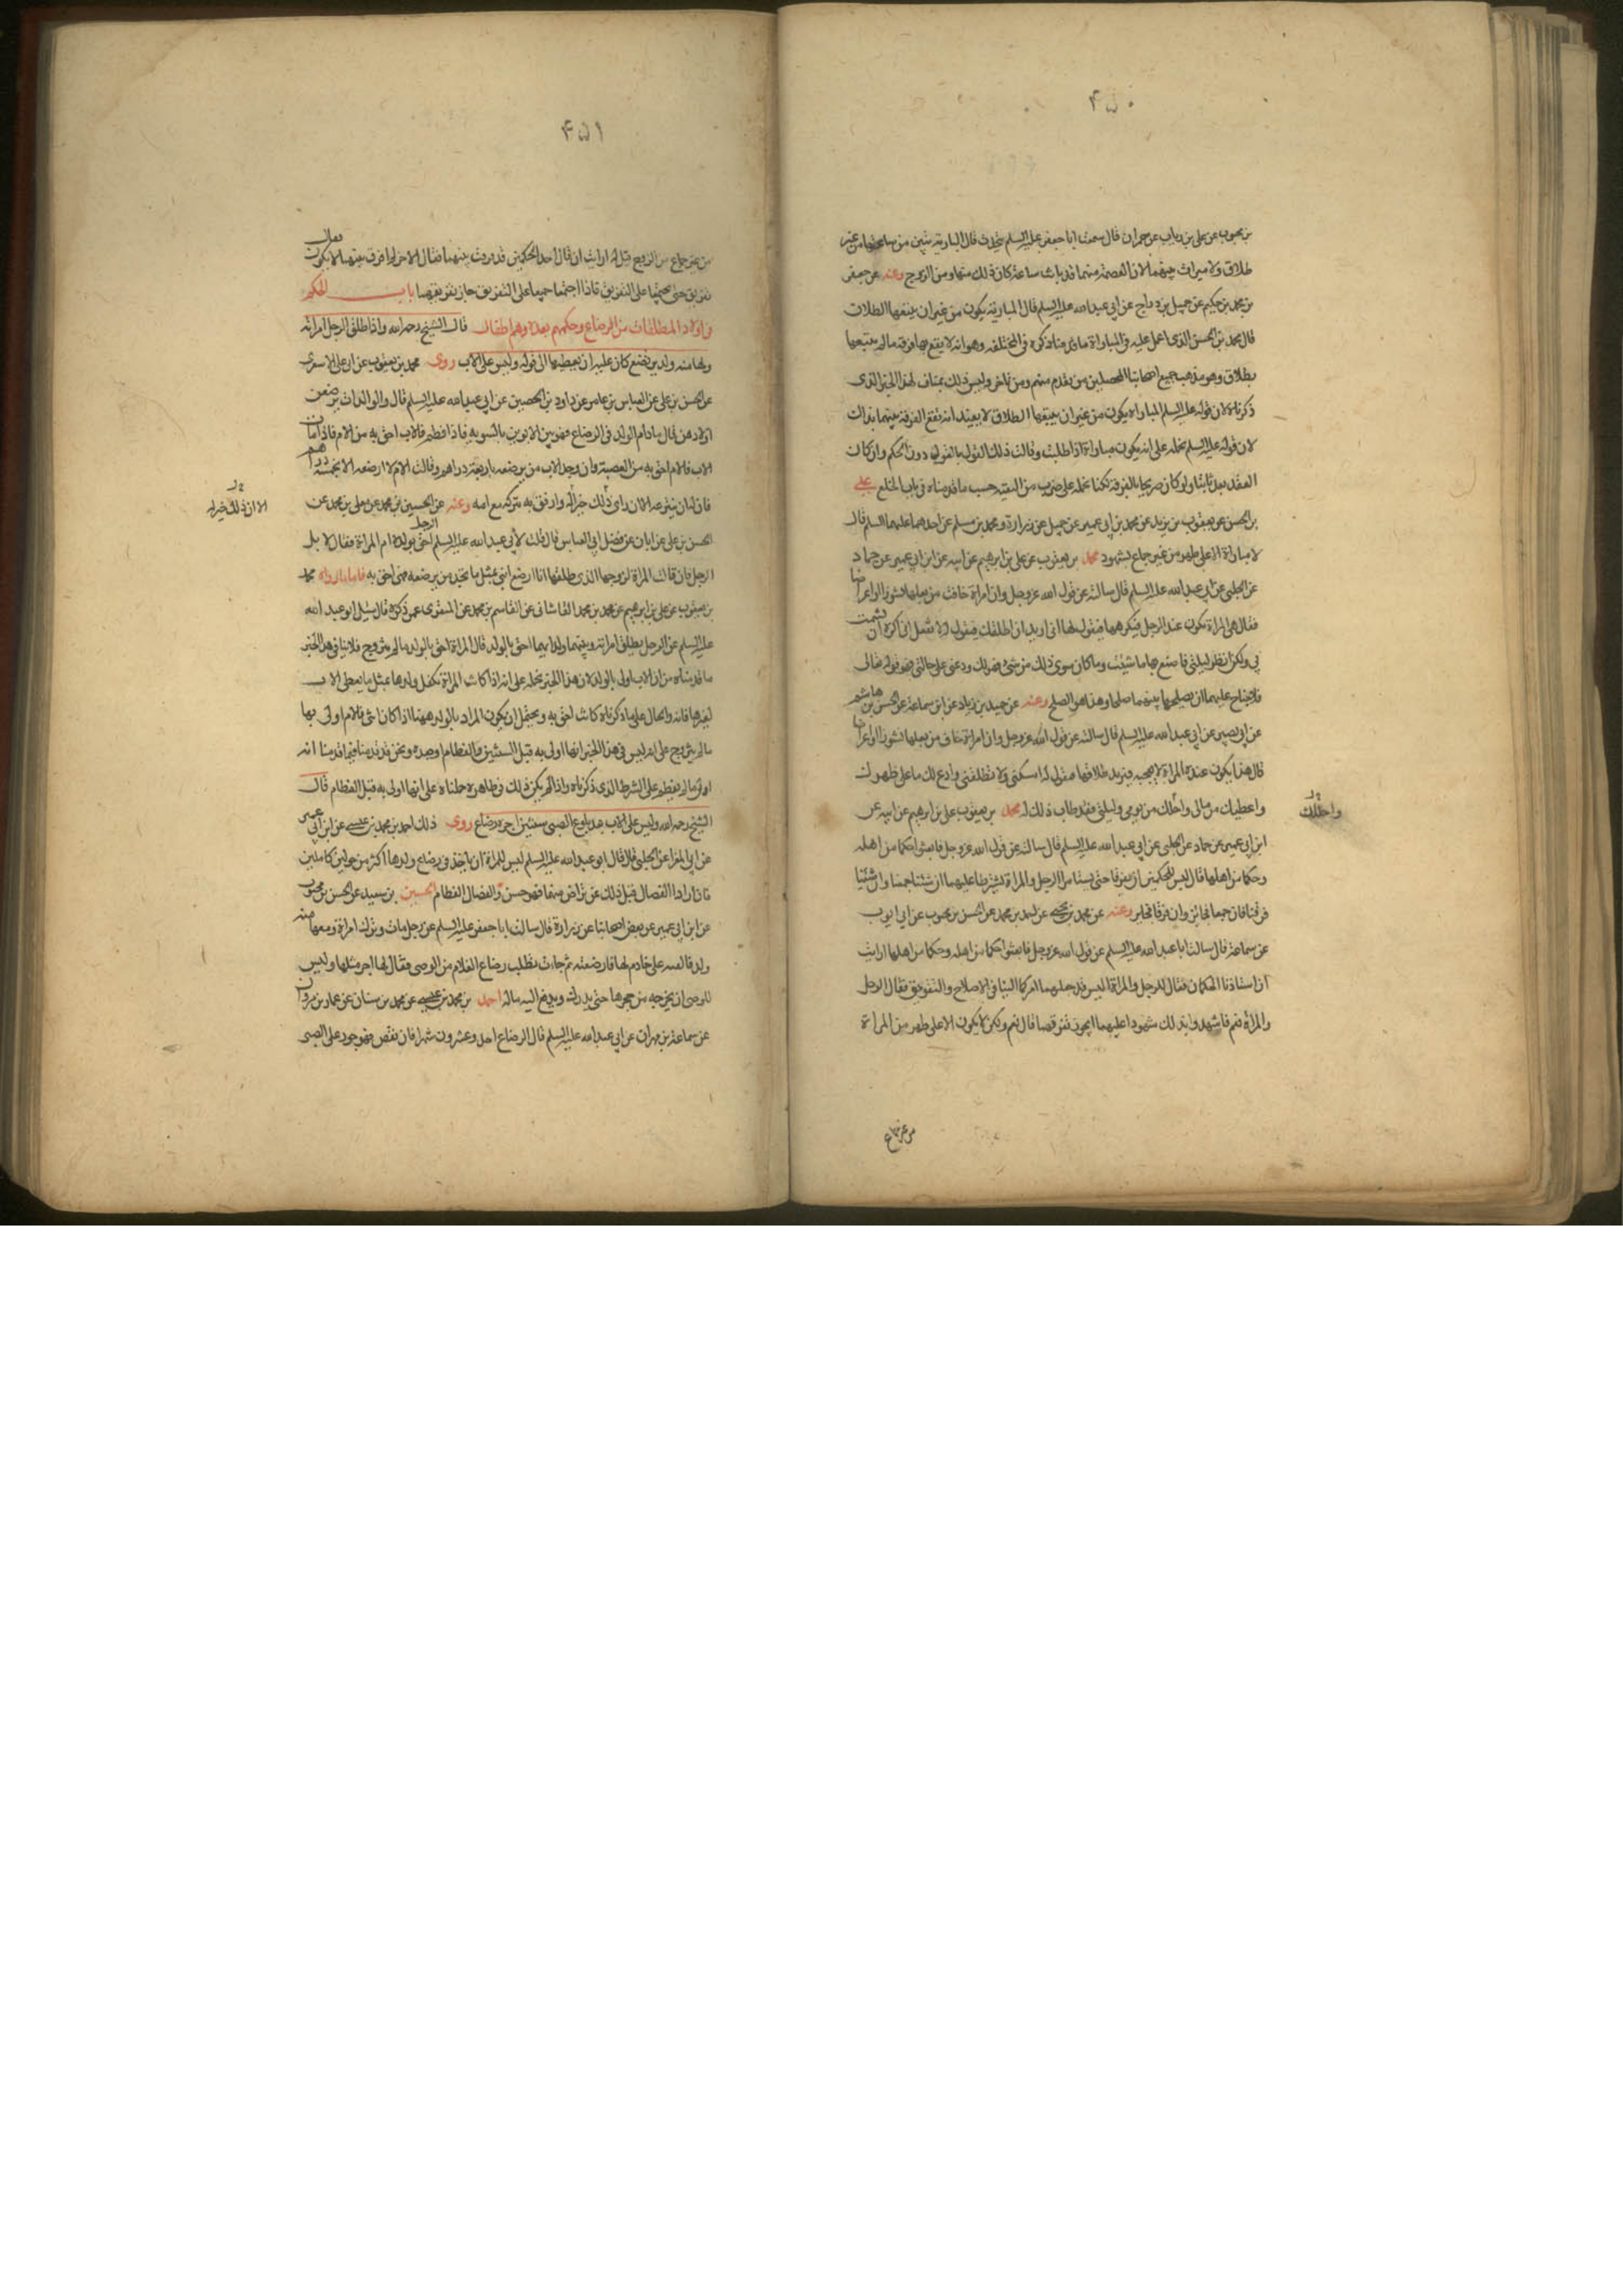 ۴۵۰
بن محبوب عن علي بن رياب عن حمران قال سمعت ابا جعفر عليه السلم يتحدث قال المبارية تبين من ساعتها من غير
طلاق ولا ميراث بينهما لان العصمة منهما قد بانت ساعة كان ذلك منها ومن الزوج وعنه عن جعفر
بن محمد بن حكيم عن جميل بن دراج عن ابي عبد الله عليه السلم قال المباراة يكون من غير ان يتبعها الطلاق
قال محمد بن الحسن الذي اعمل عليه في المباراة ما قدمنا ذكره في المختلعة وهو انه لا يقع بها فرقة ما لم يتبعها
بطلاق وهو مذهب جميع اصحابنا المحصلين من تقدم منهم ومن تاخر وليس ذلك بمناف لهذا الخبر الذي
ذكرناه لان قوله عليه السلم المباراة يكون من غير ان يتبعها الطلاق لا يفيد انه يقع الفرقة بينهما بذلك
لان قوله عليه السلم نحمله على انه يكون مباراة اذا طلبت وقالت ذلك القول بالقول دون الحكم وان كان
العقد بعد ثابتا ولو كان صريحا بالفرقة لكنا نحمله على ضرب من التقية حسب ما قدمناه في باب الخلع علي
بن الحسن عن يعقوب بن يزيد عن محمد بن ابي عمير عن جميل عن زرارة ومحمد بن مسلم عن احدهما عليهما السلم قال
لا مباراة الا على طهر من غير جماع بشهود محمد بن يعقوب عن علي بن ابرهيم عن ابيه عن ابن ابي عمير عن حماد
عن الحلبي عن ابي عبد الله عليه السلم قال سالته عن قول الله عز وجل وان امراة خافت من بعلها نشوزا او اعراضا
فقال هي المراة تكون عند الرجل فيكرهها فيقول لها اني اريد ان اطلقك فيقول لا تفعل اني اكره ان تشمت
بي ولكن انظر ليلتي فاصنع بها ما شئت وما كان سوى ذلك من شئ فهو لك ودعني على حالتي فهو قوله تعالى
فلا جناح عليهما ان يصلحا بينهما صلحا وهذا هو الصلح وعنه عن حميد بن زياد عن ابن سماعة عن الحسن بن هاشم
عن ابي بصير عن ابي عبد الله عليه السلم قال سالته عن قول الله عز وجل وان امراة خافت من بعلها نشوزا او اعراضا
قال هذا يكون عنده المراة لا يعجبه فيريد طلاقها فتقول له امسكني ولا تطلقني وادع لك ما على ظهرك
واعطيك من مالي واحلك من يومي وليلتي فقد طاب ذلك له محمد بن يعقوب علي بن ابرهيم عن ابيه عن
واحللك
ابن ابي عمير عن حماد عن الحلبي عن ابي عبد الله عليه السلم قال سالته عن قول الله عز وجل فابعثوا حكما من اهله
وحكما من اهلها قال ليس للحكمين ان يفرقا حتى يستامرا الرجل والمراة يشترطا عليهما ان شئنا جمعنا وان شئنا
فرقنا فان جمعا فجائز وان فرقا فجايز وعنه عن محمد بن يحيى عن احمد بن محمد عن الحسن بن محبوب عن ابي ايوب
عن سماعة قال سالت ابا عبد الله عليه السلم عن قول الله عز وجل فابعثوا حكما من اهله وحكما من اهلها ارايت
ان استاذنا الحكمان فقال للرجل والمراة اليس قد جعلتما امركما الينا في الاصلاح والتفريق فقال الرجل
والمراة نعم فاشهدوا بذلك شهودا عليهما ايجوز تفرقهما قال نعم ولكن لا يكون الا على طهر من المراة
من غير جماع
۴۵۱
من غير جماع من الزوج قيل له ارايت ان قال احد الحكمين قد فرقت بينهما فقال الاخر لم افرق بينهما فقال لا يكون
تفريق حتى يجتمعا على التفريق فاذا اجتمعا جميعا على التفريق جاز تفريقهما باب الحكم
في اولاد المطلقات من الرضاع وحكمهم بعده وهم اطفال قال الشيخ رحمه الله واذا طلق الرجل امراته
ولها منه ولد يرضع كان عليه ان يعطيها الى قوله وليس على الاب روى محمد بن يعقوب عن ابو علي الاشعري
عن الحسن بن علي عن العباس بن عامر عن داود بن الحصين عن ابي عبد الله عليه السلم قال والوالدات يرضعن
اولادهن قال ما دام الولد في الرضاع فهو بين الابوين بالسوية فاذا فطم فالاب احق به من الام فاذا مات
الاب فالام احق به من العصبة وان وجد الاب من يرضعه باربعة دراهم وقالت الام لا ارضعه الا بخمسة دراهم
فان له ان ينتزعه الا ان راى ذلك خيرا له وارفق به يتركه مع امه وعنه عن الحسين بن محمد عن معلى بن محمد عن
الا ان ذلك خير له
الحسن بن علي عن ابان عن فضل ابي العباس قال قلت لابي عبد الله عليه السلم الرجل احق بولده ام المراة فقال لا بل
الرجل فان قالت المراة لزوجها الذي طلقها انا ارضع ابني بمثل ما تجد من يرضعه فهي احق به فاما ما رواه محمد
بن يعقوب عن علي بن ابرهيم عن محمد بن محمد القاشاني عن القاسم بن محمد عن المنقري عمن ذكره قال سئل ابو عبد الله
عليه السلم عن الرجل يطلق امراته وبينهما ولد ايهما احق بالولد قال المراة احق بالولد ما لم يتزوج فلا ينافي هذا الخبر
ما قدمناه من ان الاب اولى بالولد لان هذا الخبر نحمله على انه اذا كانت المراة تكفل ولدها بمثل ما يعطى الاب
لغيرها فانه والحال على ما ذكرناه كانت احق به ويحتمل ان يكون المراد بالولد ههنا اذا كان انثى فالام اولى بها
ما لم يتزوج على انه ليس في هذا الخبر انها اولى به قبل السنتين والفطام او بعده ونحن قد قدمنا فيما قدمنا انه
اولى ما لم يفطم على الشرط الذي ذكرناه واذا لم يكن ذلك في ظاهره حملناه على انها اولى به قبل الفطام قال
الشيخ رحمه الله وليس على الاب بعد بلوغ الصبي سنتين اجر رضاع روى ذلك احمد بن محمد بن عيسى عن ابن ابي عمير
عن ابي المغرا عن الحلبي قال قال ابو عبد الله عليه السلم ليس للمراة ان ياخذ في رضاع ولدها اكثر من حولين كاملين
فان ارادا الفصال قبل ذلك عن تراض منهما فهو حسن والفصال الفطام الحسين بن سعيد عن الحسن بن محبوب
عن ابن ابي عمير عن بعض اصحابنا عن زرارة قال سالت ابا جعفر عليه السلم عن رجل مات وترك امراة ومعها منه
ولد فالقته على خادم لها فارضعته ثم جاءت تطلب رضاع الغلام من الوصي فقال لها اجر مثلها وليس
للوصي ان يخرجه من حجرها حتى يدرك ويدفع اليه ماله احمد بن محمد بن عيسى عن محمد بن سنان عن عمار بن مروان
عن سماعة بن مهران عن ابي عبد الله عليه السلم قال الرضاع احد وعشرون شهرا فان نقص فهو جور على الصبي